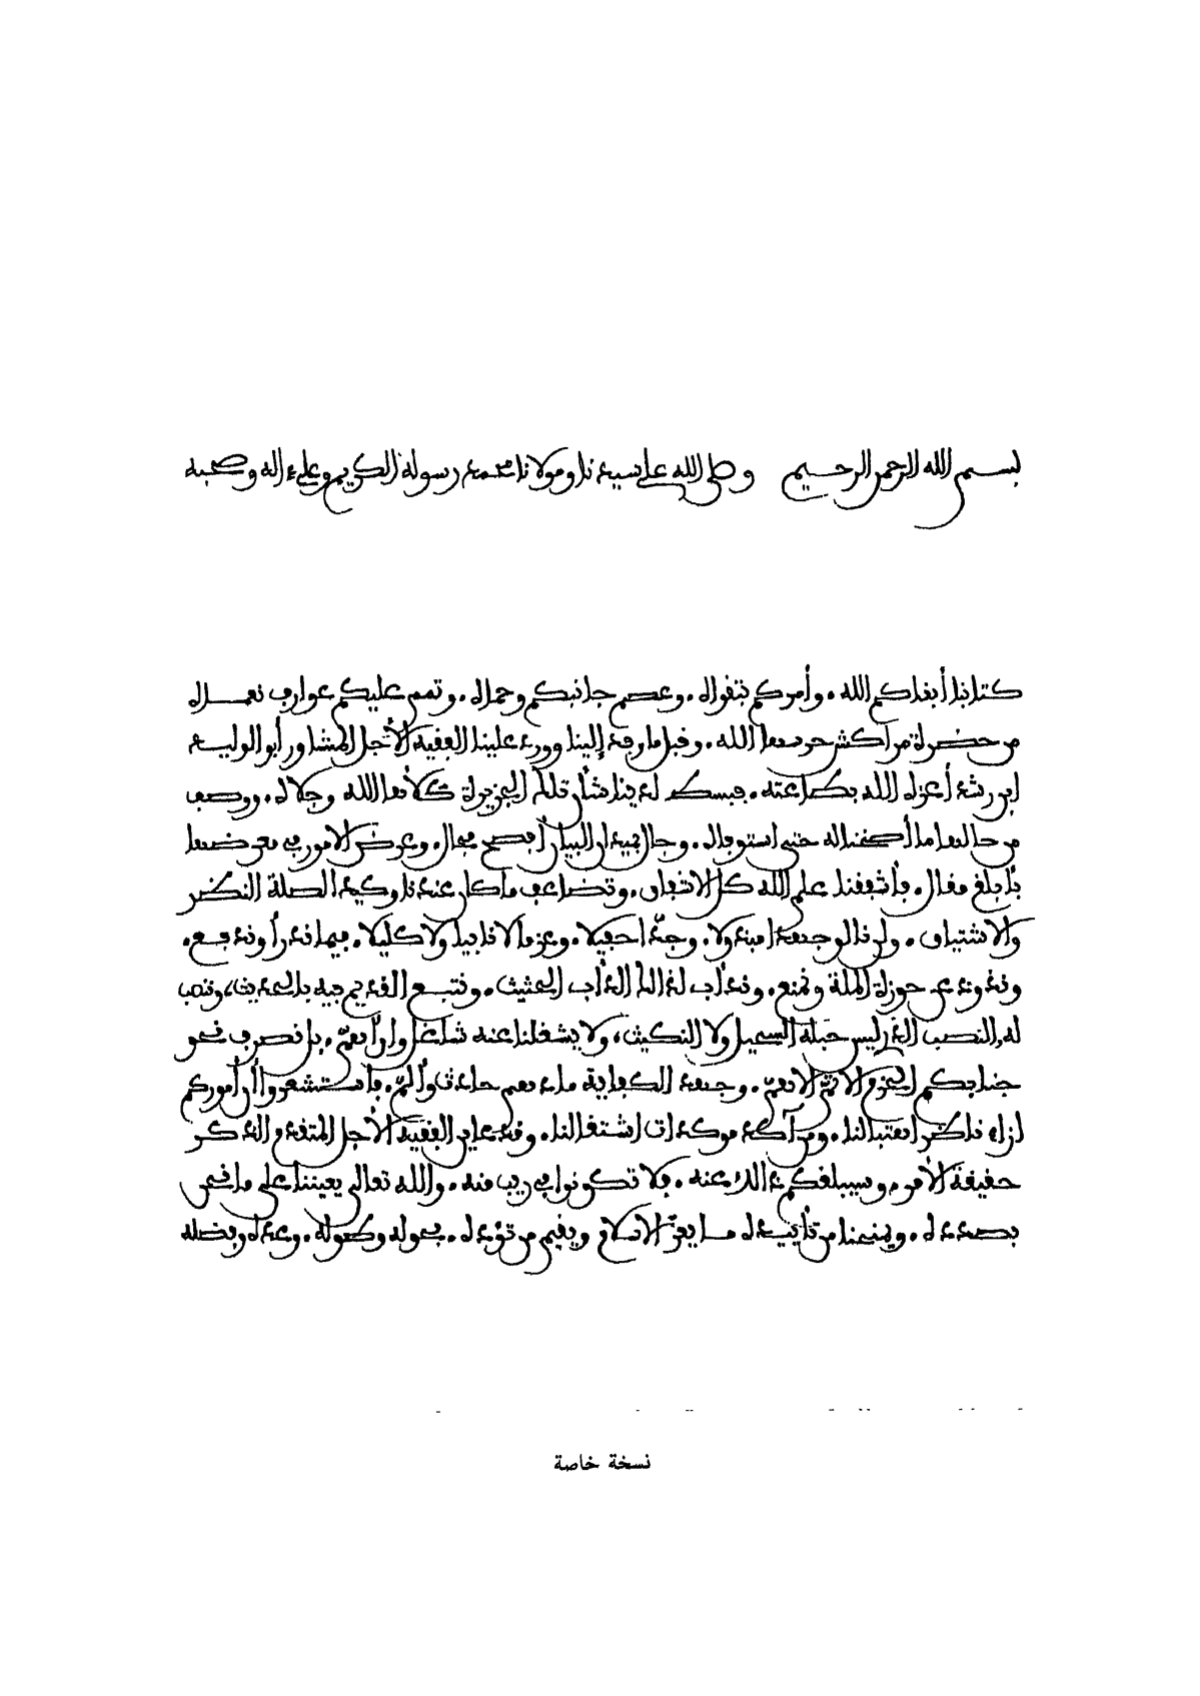 بسم الله الرحمن الرحيم وصلى الله على سيدنا ومولانا محمد رسوله الكريم وعلى ءاله وصحبه
كتابنا أبقاكم الله. وأمركم بتقواه. وعصم جانبكم وحماه. وتمم عليكم عوارف نعماه
من حضرة مراكش حرسها الله. وقبل ما وفد إلينا وورد علينا الفقيه الأجل المشاور أبو الوليد
ابن رشد أعزه الله بطاعته. فبسط لدينا شأن تلك الجزيرة كلأها الله وجلاه. ووصف
من حالها ما أصخنا له حتى استوفاه. وجال في ميدان البيان أفصح مجال. وعرض الأمور في معرضها
بأبلغ مقال. فأشفقنا علم الله كل الاشفاق. وتضاعف ما كان عندنا وكيد الصلة النظر
والاشتياق. ولن نالو جهدا مبذولا. وجدا حفيلا. وعزما لا نابيا ولا كليلا. فيما ندرأ وندفع.
ونذود عن حوزة الملة ونمنع. وندأب لذلك الدأب الحثيث. ونتبع القديم فيه بالحديث، وننصب
له النصب الذي ليس حبله السحيل ولا النكيث، ولا يشغلنا عنه شاغل وان أهم. بل نصرف نحو
جنابكم الحزم الاتم الاهم. وجهد الكفاية ما دهم حادث وألم. فاستشعروا أن أموركم
ازاء ناظر اهتبالنا. ومن آكد موكدات اشتغالنا. وقد عاين الفقيه الأجل المتقدم الذكر
حقيقة الأمر. وسيبلغكم ذالك عنه. فلا تكونوا في ريب منه. والله تعالى يعيننا على ما نحن
بصدده. ويمنحنا من تأييده ما يعز الاسلام ويقيم من تؤده. بحوله وطوله. وعدله وبفضله
نسخة خاصة